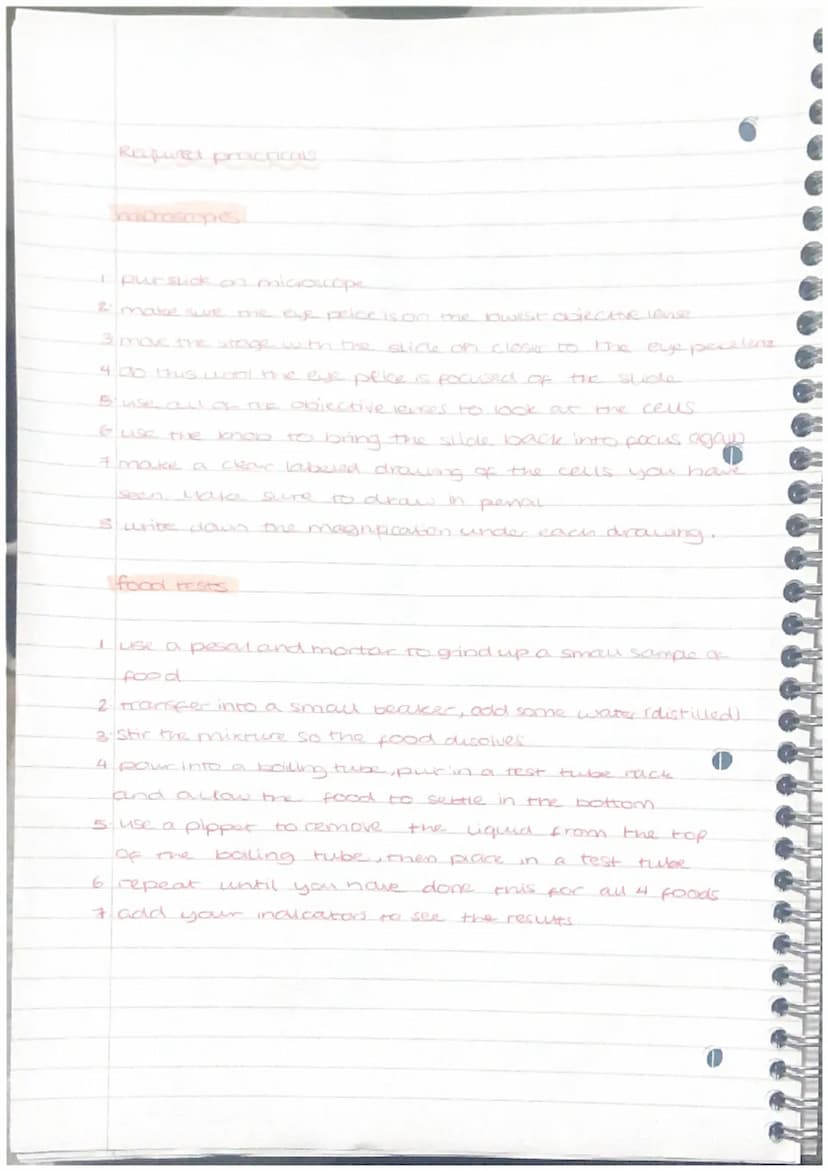 Required practicals
microscopes
1 put slide on microscope
2. make sure the eye peice is on the lowest objective lense
3 move the stage with the slide on closer to the eye peice lens
4 do this until the eye peice is focused of the slide
5 use all of the objective lenses to look at the cells
6 use the knob to bring the slide back into focus again
7 make a clear labeled drawing of the cells you have
seen make sure to draw in pencil
8 write down the magnification under each drawing.
food tests
1 use a pesal and mortar to grind up a small sample of
food
2 transfer into a small beaker, add some water (distilled)
3. stir the mixture so the food disolves
4 pour into a boiling tube, put in a test tube rack
and allow the food to settle in the bottom
5 use a pippet to remove the liquid from the top
of the boiling tube, then place in a test tube
6 repeat until you have done this for all 4 foods
7 add your indicators to see the results